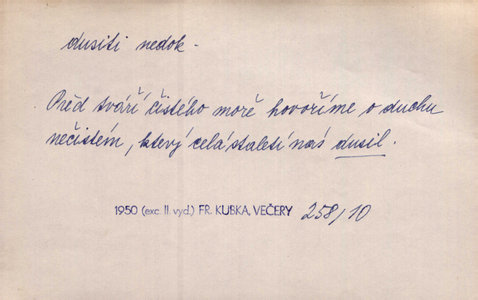 dusiti nedok.
Před tváří čistého moře hovoříme o duchu
nečistém, který celá staletí nás dusil.
1950 (exc. II. vyd.) FR. KUBKA, VEČERY 258/10